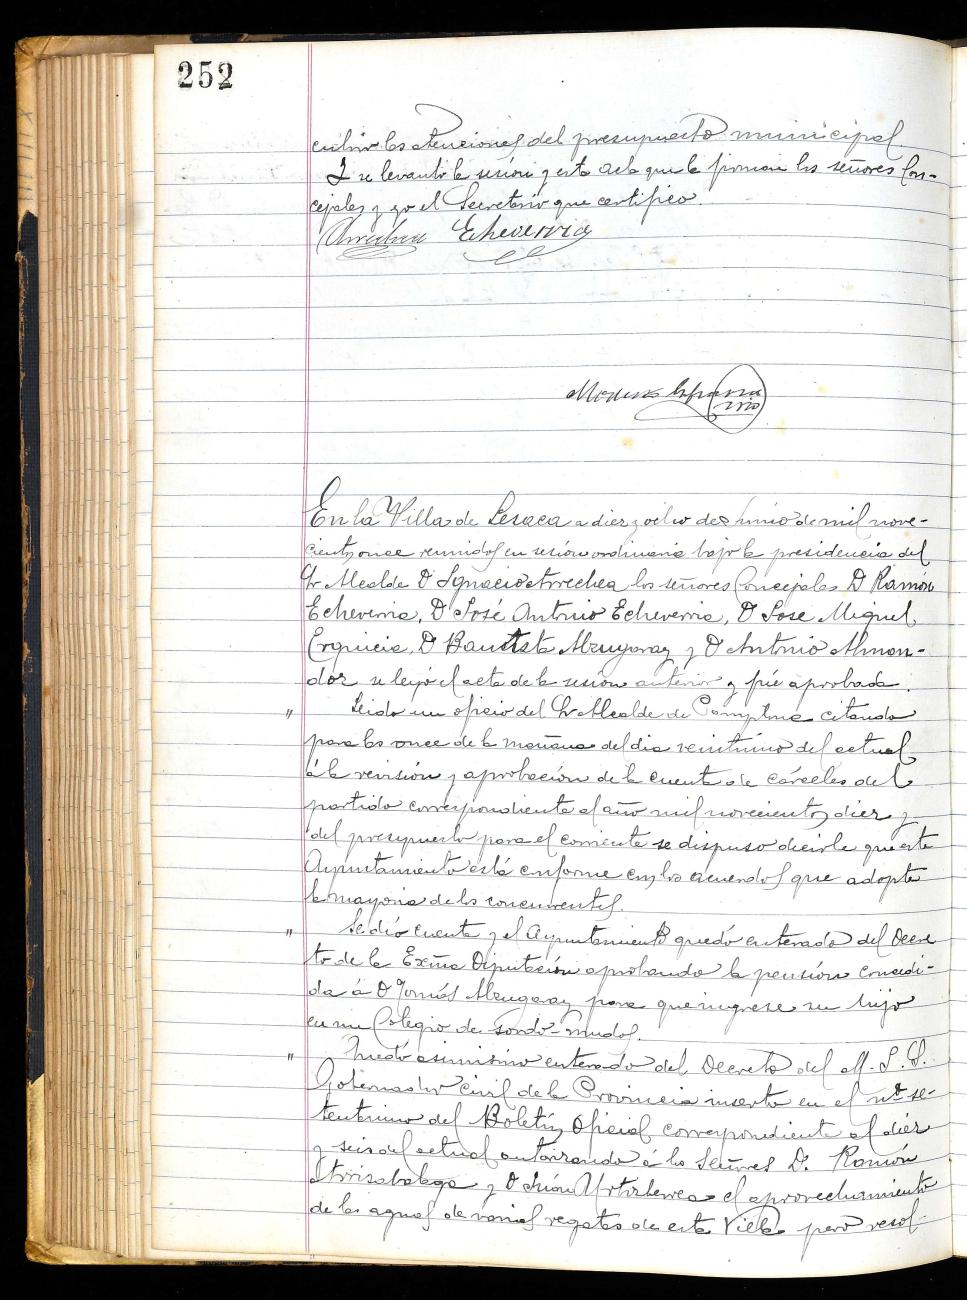 252
cubrir las atenciones del presupuesto municipal
Y se levantó la sesión y esta acta que la firman los señores Con-
cejales y yo el Secretario que certifico.
Arrechea Echeverria
En la Villa de Lesaca a diez y ocho de Junio de mil nove-
cientos once reunidos en sesión ordinaria bajo la presidencia del
Sr Alcalde D Ignacio Arrechea los señores Concejales D Ramón
Echeverria, D José Antonio Echeverria, D Jose Miguel
Erquicia, D Bautista Alzugaray y D Antonio Alman-
doz se leyó el acta de la sesión anterior y fué aprobada.
" Leido un oficio del Sr Alcalde de Pamplona citando
para las once de la mañana del dia veintiuno del actual
á la revisión y aprobación de la cuenta de cárceles del
partido correspondiente al año mil novecientos diez y
del presupuesto para el corriente se dispuso decirle que este
Ayuntamiento está conforme con los acuerdos que adopte
la mayoria de los concurrentes.
" Se dió cuenta y el Ayuntamiento quedó enterado del Decre
to de la Exma Diputación aprobando la pensión concedi-
da á D Tomás Alzugaray para que ingrese su hijo
en un Colegio de sordo-mudos.
" Quedó asimismo enterado del Decreto del M. I. S.
Gobernador civil de la Provincia inserto en el nº se-
tentaiuno del Boletín Oficial correspondiente al diez
y seis del actual autorizando á los Señores D. Ramón
Arrizabalaga y D Urtizberea el aprovechamiento
de las aguas de varias regatas de esta Villa pero resul-